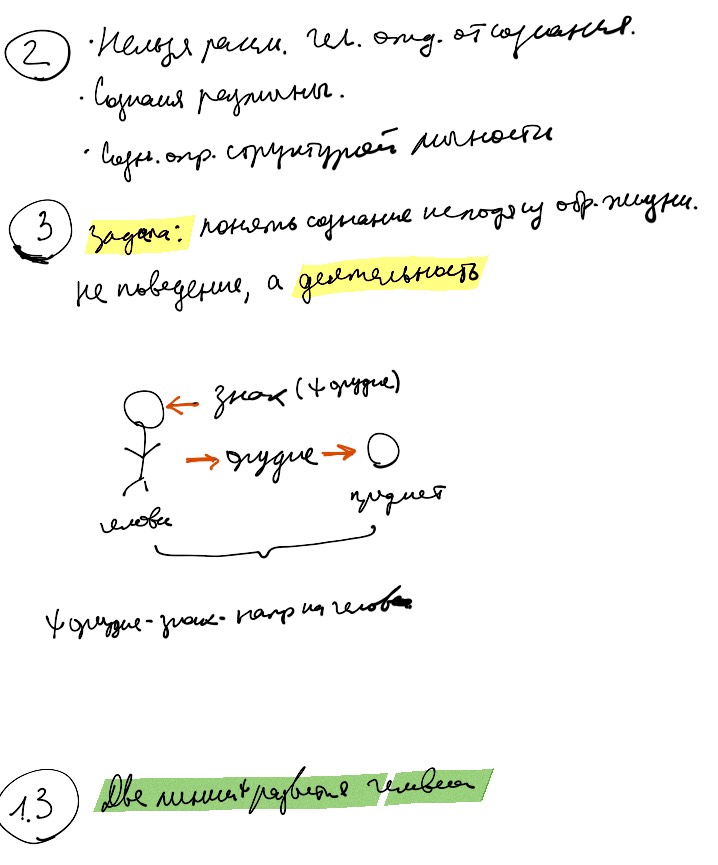 2 · Нельзя рассм. чел. отд. от сознания.
· Сознания различны.
· Созн. опр. структурой личности
3 Задача: понять сознание исподз у обр. жизни.
не поведение, а деятельность
знак (Ψ орудие)
орудие
предмет
человек
Ψ орудие - знак - напр на человека
1.3 Две линии Ψ развития человека